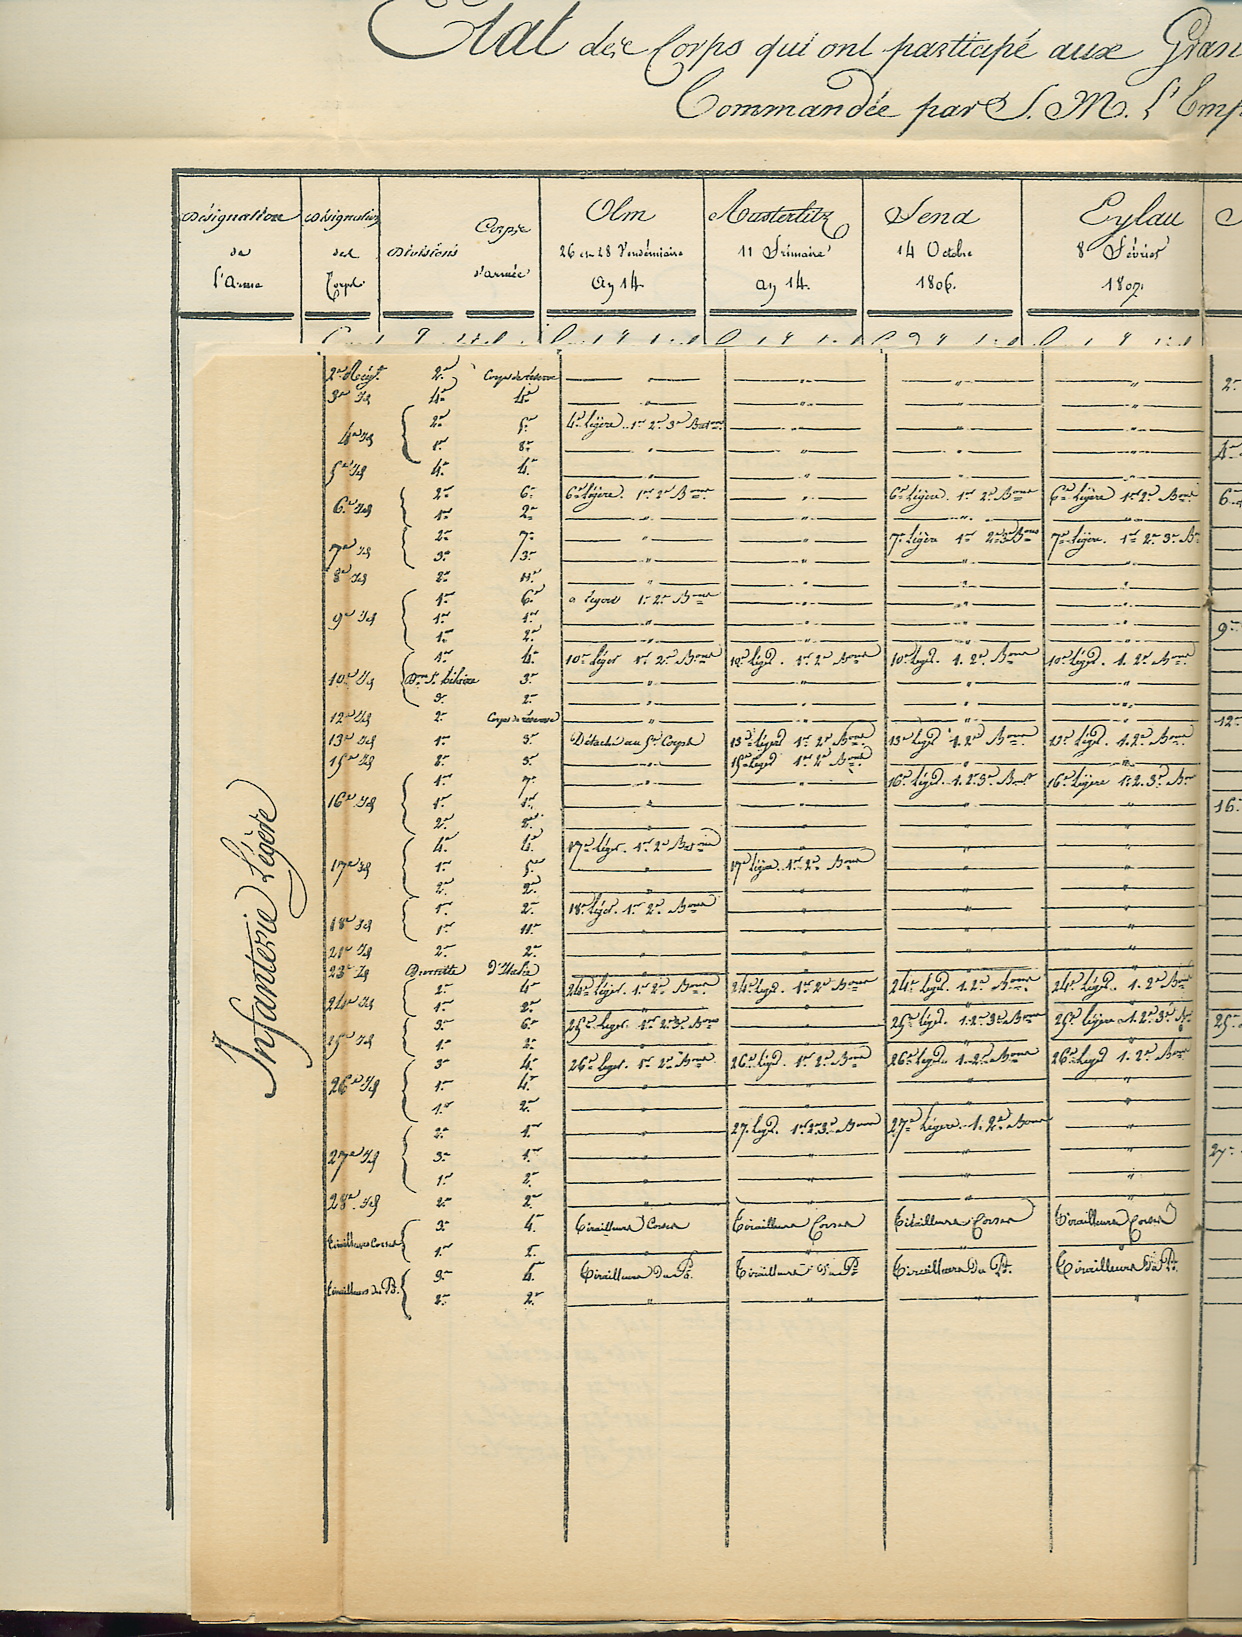 Etat des Corps qui ont participé aux Gran
Commandée par S. M. l'Emp
Désignation de l'Arme
Désignation des Corps
Divisions
Corps d'armée
Ulm 26 et 28 Vendémiaire an 14
Austerlitz 11 Frimaire an 14.
Jena 14 Octobre 1806.
Eylau 8 Février 1807.
Infanterie Légère
2e Régt. 2e Corps de réserve " " " " 2e
3e Id 4e 4e " " " "
4e Id 2e 5e 4e légère 1er 2e 3e Batons " " "
1er 8e " " " " 4e
5e Id 4e 4e " " " "
6e Id 2e 6e 6e légère. 1er 2e Bons " 6e légère. 1er 2e Bons 6e légère 1er 2e Bons 6e
1er 2e " " " "
7e Id 2e 7e " " 7e légère 1er 2e 3e Bons 7e légère. 1er 2e 3e Bn
3e 3e " " " "
8e Id 2e 11e " " " "
9e Id 1er 6e 9 légère 1er 2e Bons " " "
1er 1er " " " "
1er 2e " " " " 9e
10e Id 1er 4e 10e léger 1er 2e Bons 10e légè. 1er 2e Bons 10e légè. 1. 2e Bons 10e légè. 1. 2e Bons
Don St. hilaire 3e " " " "
3e 2e " " " "
12e Id 2e Corps de réserve " " " " 12e
13e Id 1er 3e Détaché au 5e Corps 13e légère 1er 2e Bons 13e légè 1. 2e Bons 13e légè. 1. 2e Bons
15e Id 2e 3e " 15e légère 1er 2e Bons " "
16e Id 1er 7e " " 16e légè. 1. 2e 3e Bons 16e légère 1. 2. 3e Bns
1er 1er " " " " 16.
2e 2e " " " "
17e Id 4e 4e 17e léger. 1er 2e Batons " " "
1er 5e " 17e légère. 1er 2e Bons " "
2e 2e " " " "
18e Id 1er 2e 18e léger. 1er 2e Bons " " "
1er 11e " " " "
21e Id 2e 2e " " " "
23e Id d'Italie " " " "
24e Id 2e 4e 24e léger. 1er 2e Bons 24e légè. 1er 2e Bons 24e légè. 1. 2e Bons 24e légè. 1. 2e Bons
1er 2e " " " "
25e Id 3e 6e 25e léger. 1er 2e 3e Bons " 25e légè. 1. 2e 3e Bons 25e légère 1. 2e 3e Bn 25e
1er 2e " " " "
26e Id 3e 4e 26e léger. 1er 2e Bons 26e légè. 1er 2e Bons 26e légè. 1. 2e Bons 26e légè 1. 2e Bons
1er 4e " " " "
1er 2e " " " "
27e Id 2e 1er " 27. légè. 1er 2e 3e Bons 27e légère. 1. 2e Bons "
3e 1er " " " " 27e
1er 2e " " " "
28e Id 2e 2e " " " "
Tirailleurs Corses 3e 4e Tirailleurs Corses Tirailleurs Corses Tirailleurs Corses Tirailleurs Corses
1er 2e " " " "
Tirailleurs du Pô. 3e 4e Tirailleurs du Pô. Tirailleurs du Pô Tirailleurs du Pô. Tirailleurs du Pô.
2e 2e " " " "